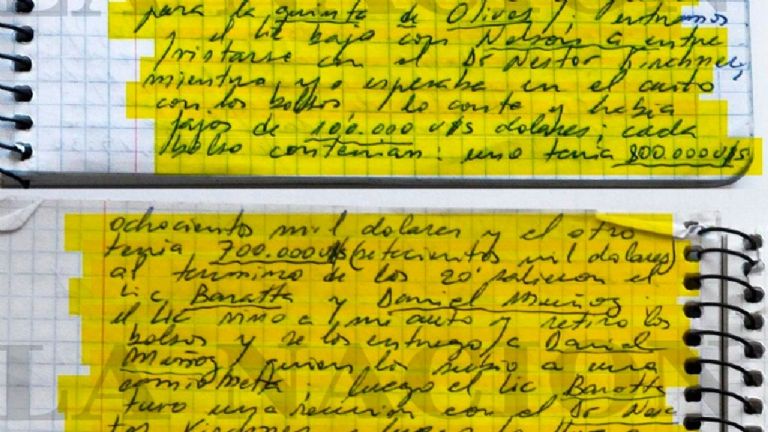 para la quinta de Olivos / entramos
y el lic bajo con Nelson a entre
vistarse con el Dr Nestor Kirchner,
mientras yo esperaba en el auto
con los bolsos / lo conte y había
fajos de 100.000 u$s dolares; cada
bolso contenían: uno tenía 800.000 u$s
ochocientos mil dolares y el otro
tenia 700.000 u$s (setecientos mil dolares)
al termino de los 20' salieron el
Lic Baratta y Daniel Muñoz.
el lic vino a mi auto y retiro los
bolsos y se los entrego / a Daniel
Muñoz / quien los subio a una
camioneta; luego el lic Baratta
tuvo una reunión con el Dr Nes
tor Kirchner
LA NACION